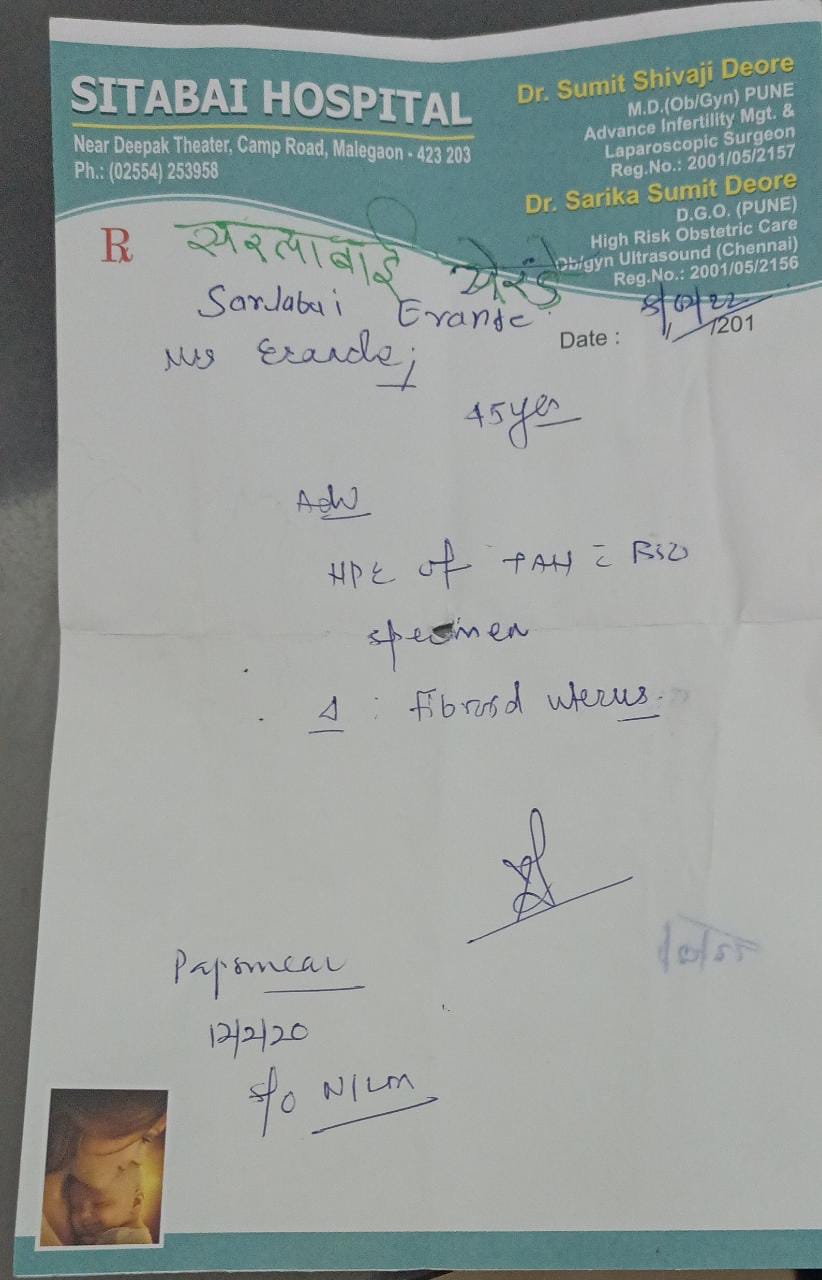 SITABAI HOSPITAL
Near Deepak Theater, Camp Road, Malegaon - 423 203
Ph.: (02554) 253958
Dr. Sumit Shivaji Deore
M.D.(Ob/Gyn) PUNE
Advance Infertility Mgt. &
Laparoscopic Surgeon
Reg.No.: 2001/05/2157
Dr. Sarika Sumit Deore
D.G.O. (PUNE)
High Risk Obstetric Care
Ob/gyn Ultrasound (Chennai)
Reg.No.: 2001/05/2156
R
सरलाबाई येरंडे
Sarlabai Erande
Date : /22 /201
Mrs Erande;
45 yrs
Adv
HPE of TAH c̄ BSO
specimen
Δ : fibroid uterus.
Papsmear
12/2/20
s/o NILM